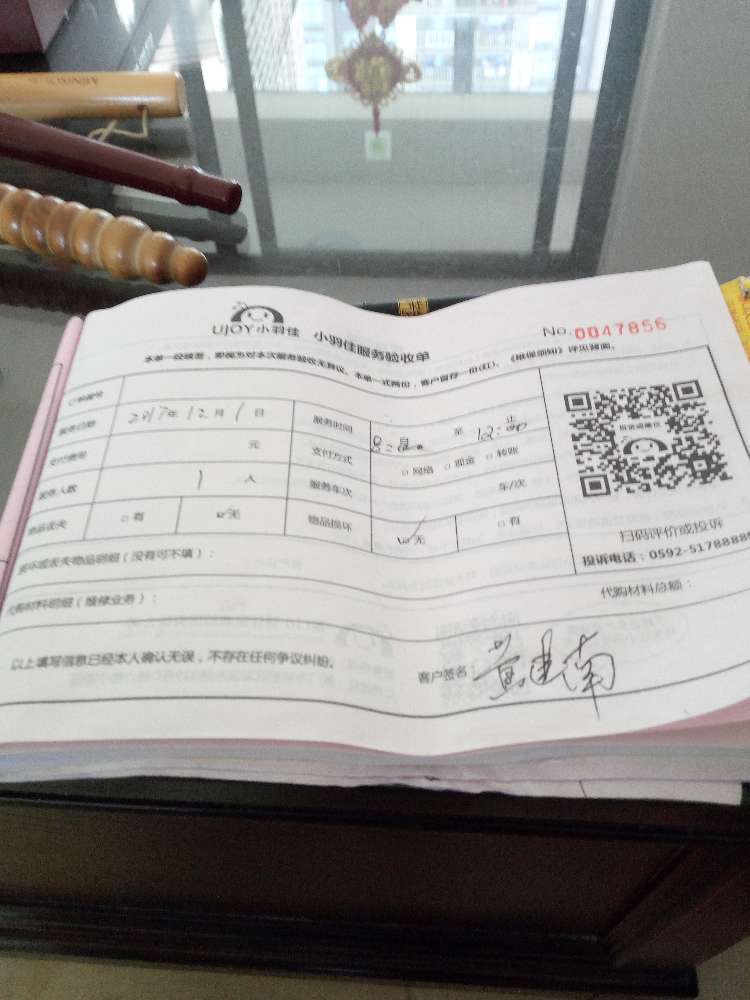 UJOY小羽佳 小羽佳服务验收单
No.0047856
本单一经续签，即视为对本次服务验收无异议。本单一式两份，客户留存一份(红)。《维保须知》详见背面。
服务日期 2017年12月1日 服务时间 8:00 至 12:00 止
支付费用 元 支付方式 □网络 □现金 □转账
服务人数 1 人 服务车次 车/次
物品丢失 □有 ☑无 物品损坏 ☑无 □有
扫码评价或投诉
投诉电话：0592-5178888
损坏或丢失物品明细（没有可不填）：
代购材料明细（维修业务）： 代购材料总额：
以上填写信息已经本人确认无误，不存在任何争议纠纷。 客户签名：黄建南